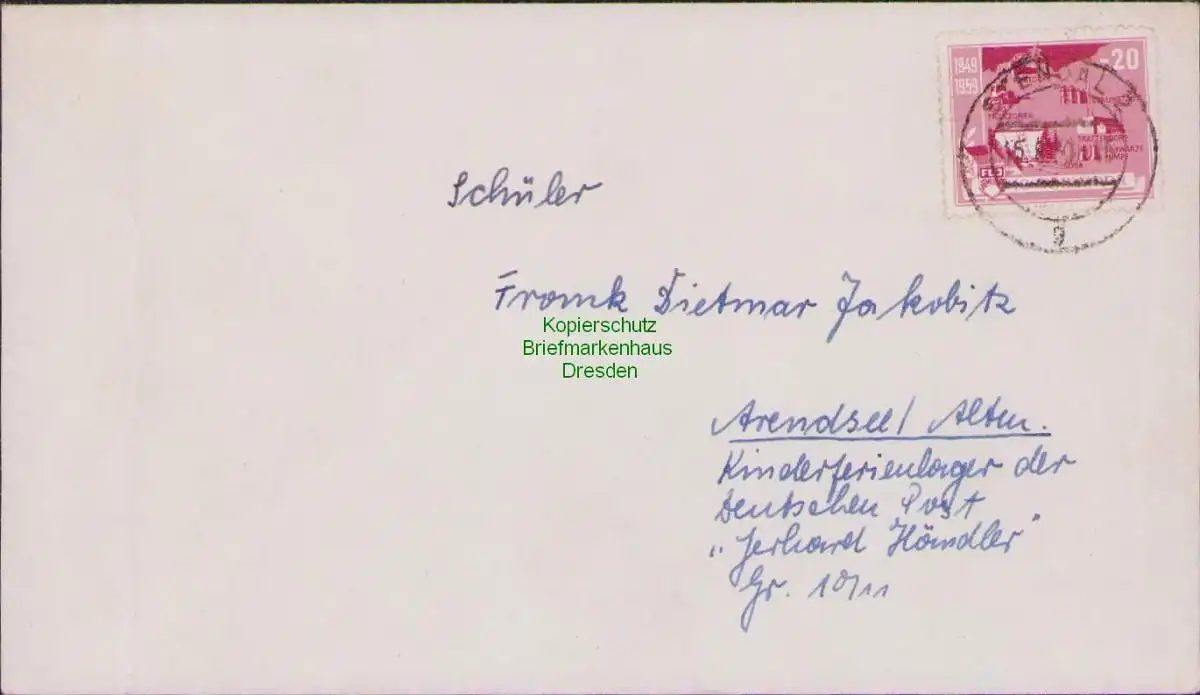 1949
1959
20
STENDAL 2
Schüler
Frank Dietmar Jakobitz
Kopierschutz
Briefmarkenhaus
Dresden
Arendsee/ Altm.
Kinderferienlager der
Deutschen Post
„Gerhard Händler"
Gr. 10/11